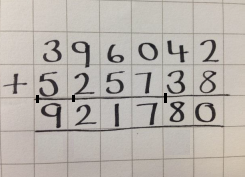 396042
+525738
921780